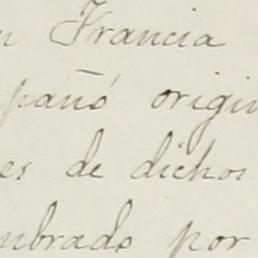 n Francia
pañó origin
es de dichos
mbrado por